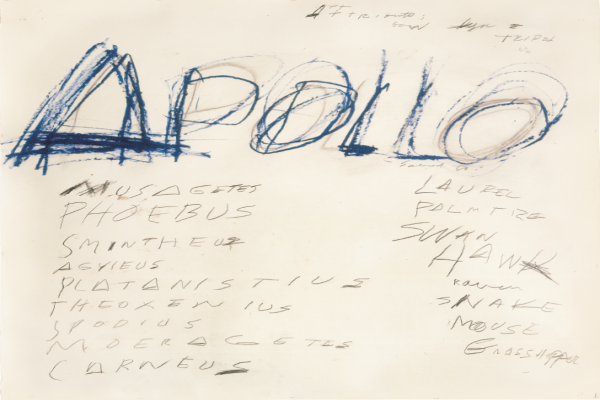 APOLLO
MUSAGETES
PHOEBUS
SMINTHEUS
AGVIEUS
PLATANISTIUS
THEOXENIUS
SPODIUS
MOERAGETES
CARNEUS
LAUREL
PALM TREE
SWAN
HAWK
raven
SNAKE
MOUSE
GRASSHOPPER